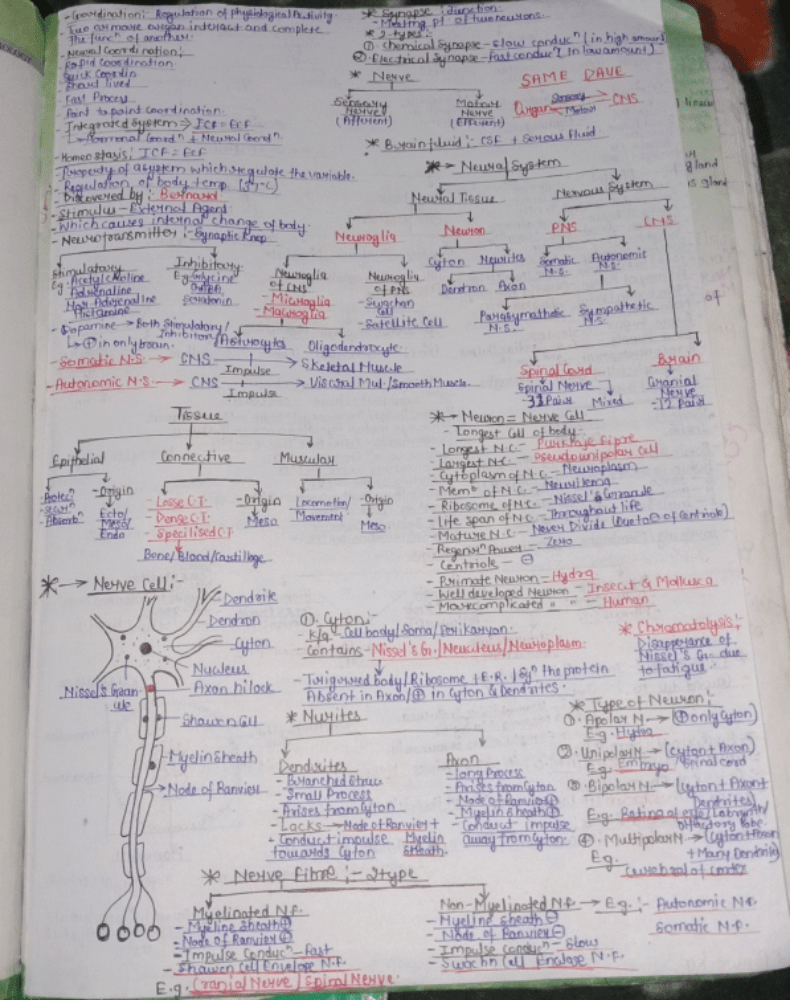 - Coordination: Regulation of physiological Activity.
- Two or more organ interact and complete
The funcⁿ of another.
- Neural Coordination:
- Rapid Coordination
- Quick Coordin
- Short lived
- Fast Process
- Point to point coordination.
- Integrated System → ICF = ECF
↳ Hormonal Coordⁿ + Neural Coordⁿ
- Homeostasis: ICF = ECF
- Property of a system which regulate the variable.
- Regulation of body temp.
- Discovered by: Bernard
- Stimulus - External Agent
- Which causes internal change of body.
- Neurotransmitter :- Synaptic Knop
Stimulatory
Eg: Acetylcholine
Adrenaline
Nor Adrenaline
Histamine
Inhibitory
E.g Glycine
GABA
Serotonin
- Dopamine → Both Stimulatory/
Inhibitory
↳ ⊕ in only brain.
- Somatic N.S. → CNS → Skeletal Muscle
Impulse
- Autonomic N.S. → CNS → Visceral Mul./Smooth Muscle.
Impulse
* Synapse : Junction:
- Meeting pt of two neurons.
* 2-types:
① Chemical Synapse - Slow conducⁿ (in high amount)
② Electrical Synapse - fast conducⁿ (in low amount)
* Nerve
Sensory
Nerve
(Afferent)
Motor
Nerve
(Efferent)
SAME DAVE
Organ Sensory CNS
Motor
* Brain fluid :- CSF + Serous Fluid
* → Neural System
Neural Tissue
Nervous System
Neuroglia
Neuron
PNS
CNS
Cyton
Neurites
Somatic
N.S.
Autonomic
N.S.
Neuroglia
of CNS
- Microglia
- Macroglia
Neuroglia
of PNS
- Swachan
Cell
- Satellite Cell
Dendron
Axon
Parasymathetic
N.S.
Sympathetic
N.S.
Astrocytes
Oligodendrocyte
Spinal Cord
Spinal Nerve
- 31 Pair
Mixed
Brain
Cranial
Nerve
- 12 Pair
Tissue
Epithelial
Connective
Muscular
- Origin
Ecto/
Meso/
Endo
- Losse C.T.
- Dense C.T.
- Specilised C.T.
- Origin
Meso.
Locomotion/
Movement
- Origin
Meso.
Bone/Blood/Cartillage
* → Neuron = Nerve Cell
- Longest Cell of body.
- Longest N.C. - Purkinje Fipre
- Largest N.C. - Pseudounipolar Cell
- Cytoplasm of N.C. - Neuroplasm
- Memᵇ of N.C. - Neurilema
- Ribosome of N.C. - Nissel's Granule
- Life span of N.C. - Throughout life
- Mature N.C. - Never Divide (Due to ⊖ of Centriole)
- Regenⁿ Power - Zero
- Centriole - ⊖
- Primate Neuron = Hydra
- Well developed Neuron - Insect & Mollusca
- More complicated " " - Human
* → Nerve Cell :-
Dendrite
Dendron
Cyton
Nucleus
Axon hilock
Nissel's Gran-
ule
Shawen Cell
Myelin Sheath
Node of Ranvier
①. Cyton :-
- K/a Cell body/Soma/Perikaryon.
- Contains - Nissel's G./Neucleus/Neuroplasm.
- Twigrred body/Ribosome + E.R. / Synⁿ the protein
Absent in Axon/⊕ in Cyton & Dendrites.
* Chromatolysis:
Disapperance of
Nissel's G. due
to fatigue.
* Nurites
Dendrites
- Branched Struc
- Small Process
- Arises from Cyton
- Lacks → Node of Ranvier +
Myelin
Sheath.
- Conduct impulse
towards Cyton
Axon
- long Process
- Arises from Cyton
- Node of Ranvier ⊕
- Myelin Sheath ⊕
- Conduct impulse
away from Cyton.
* Type of Neuron:
①. Apolar N → (⊕ only Cyton)
E.g. Hydra
②. Unipolar N → (Cyton + Axon)
E.g. Embryo/Spinal cord
③. Bipolar N. → (Cyton + Axon +
Dendrites)
E.g. Retina of eye/Labyrinth/
Olfactory lobe.
④. Multipolar N → (Cyton + Axon
+ Many Dendrite)
E.g. Cerebral of Cortex
* Nerve Fibre :- 2 type
Myelinated N.F.
- Myeline Sheath ⊕
- Node of Ranvier ⊕
- Impulse Conducⁿ - Fast
- Shawen Cell Envelope N.F.
E.g. Cranial Nerve/Spiral Nerve.
Non-Myelinated N.F. → E.g. :- Autonomic N.F.
Somatic N.F.
- Myeline Sheath ⊖
- Node of Ranvier ⊖
- Impulse Conducⁿ - Slow
- Swachn Cell Enclose N.F.
gland
of